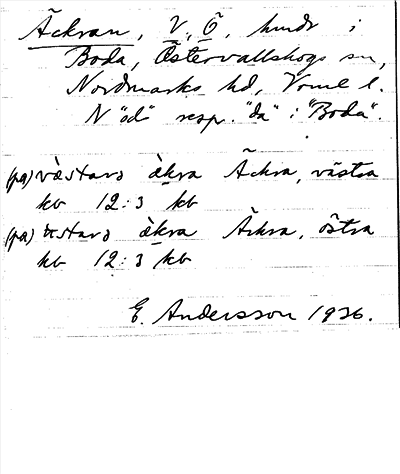 Äckran, V, Ö, hmdr i
Boda, Östervallskogs sn,
Nordmarks hd, Vrml l.
N "öd" resp. "da" i "Boda".
(pa) västarɔ àkra Äckra, västra
kb 12:3 kb
(pa) östarɔ àkra Äckra, östra
kb 12:3 kb
E. Andersson 1926.